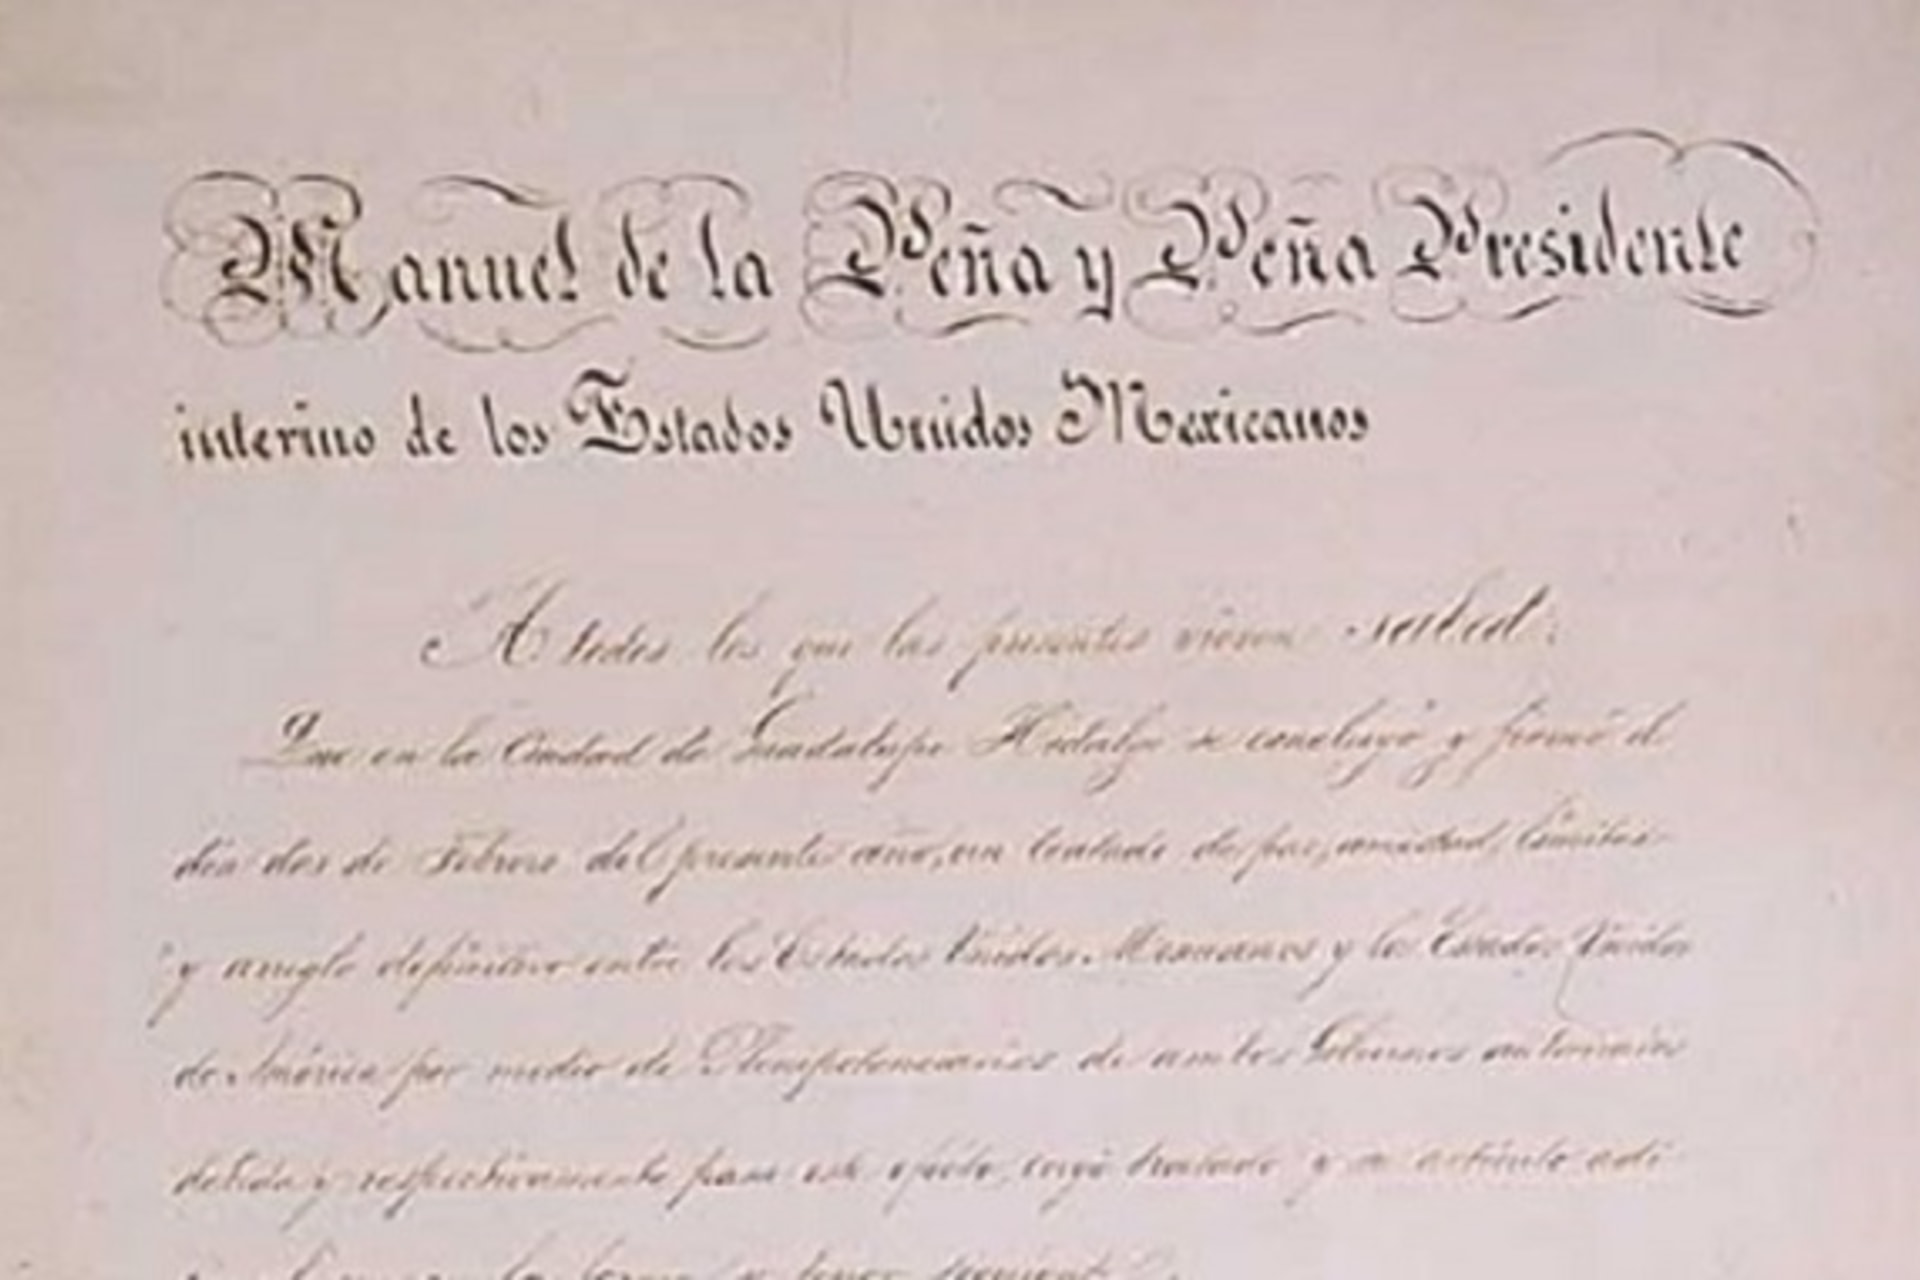 Manuel de la Peña y Peña Presidente
interino de los Estados Unidos Mexicanos
A todos los que las presentes vieren salud:
Que en la Ciudad de Guadalupe Hidalgo se concluyó y firmó el
dia dos de Febrero del presente año, un tratado de paz, amistad, límites
y arreglo definitivo entre los Estados Unidos Mexicanos y los Estados Unidos
de América por medio de Plenipotenciarios de ambos Gobiernos autorizados
debida y respectivamente para este efecto, cuyo tratado y su artículo adi
la forma y tenor siguiente